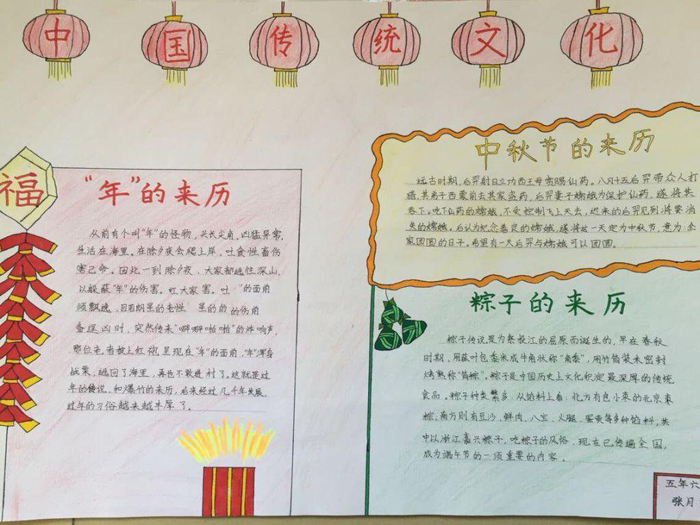 中国传统文化
福
“年”的来历
从前有个叫“年”的怪物，头长尖角，凶猛异常，
生活在海里。在除夕夜会爬上岸，吐食牲畜伤
害己命。因此一到除夕夜，大家都逃往深山，
以躲蔽“年”的伤害。旺大家害。吐 “的面角
须飘逸，目若朗星的老牲 里的老 的伤角
备逞凶时，突然传来“噼噼啪啪”的炸响声，
现在“年”的面角，“年”浑身
战栗，逃回了海里，再也不敢进村了。这就是过
年的传说，和爆竹的来历，后来经过几千年发展，
过年的习俗越来越丰厚了。
中秋节的来历
远古时期，后羿射日立功西王母害赐仙药。八月十五后羿带众人打
猎，其弟子西蒙前去其家盗药，后羿妻子嫦娥为保护仙药，遂将其
吞下。吃下仙药的嫦娥，不受控制飞上天去，迟来的后羿见到将要消
失的嫦娥，后认为纪念善良的嫦娥，遂将这一天定为中秋节，意为全
家团圆的日子。希望有一天后羿与嫦娥可以团圆。
粽子的来历
粽子传说是为祭投江的屈原而诞生的，早在春秋
时期，用菰叶包黍米成牛角状称“角黍”，用竹筒装米密封
烤熟称“筒粽”。粽子是中国历史上文化积淀最深厚的传统
食品。粽子种类繁多，从馅料上看，北方有包小枣的北京枣
粽；南方则有豆沙、鲜肉、八宝、火腿、蛋黄等多种馅料，其
中以浙江嘉兴粽子。吃粽子的风俗，现在已传遍全国，
成为端午节的一项重要的内容。
五年六
张月